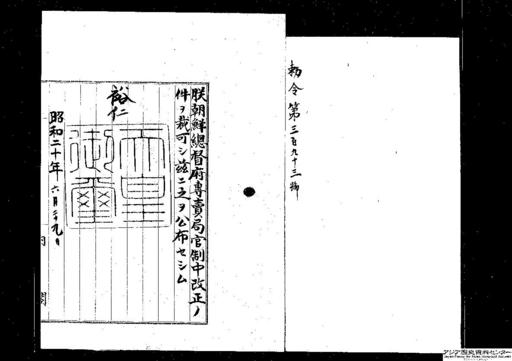 勅令第三百九十三號
朕朝鮮總督府専賣局官制中改正ノ
件ヲ裁可シ茲ニ之ヲ公布セシム
裕仁
天皇
御璽
昭和二十年六月二十九日
内閣
アジア歴史資料センター
Japan Center for Asian Historical Records